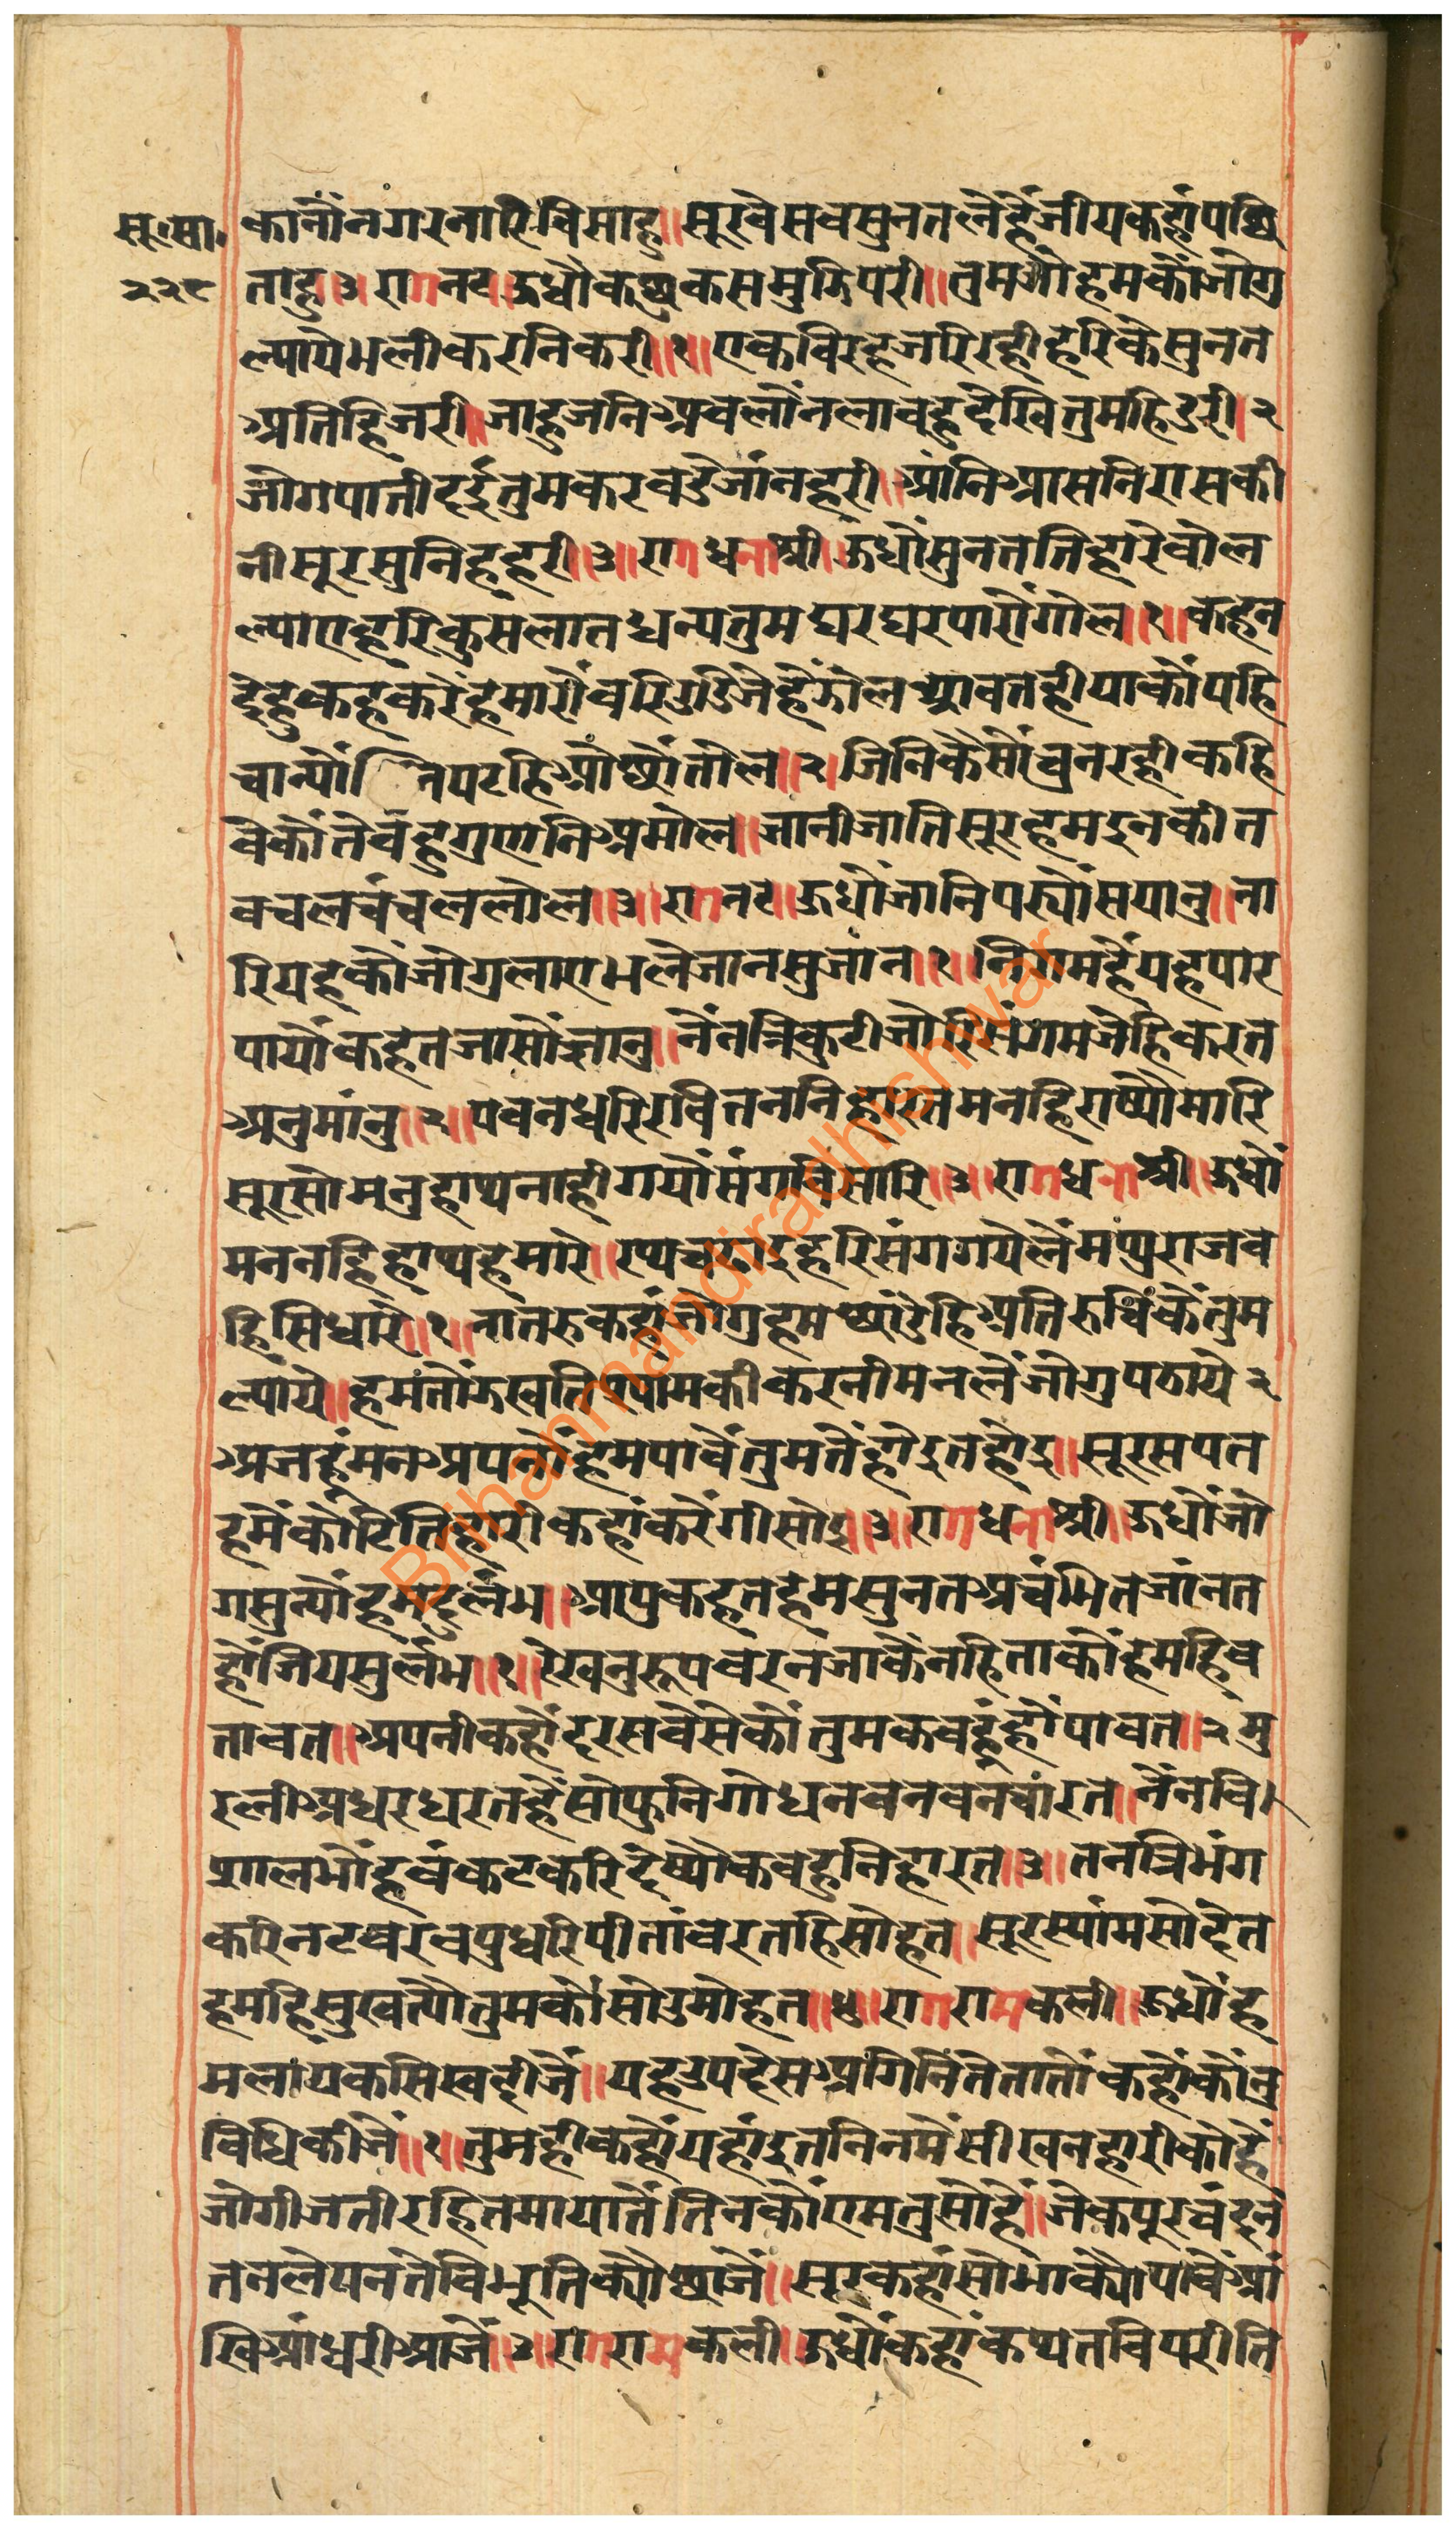 सू॰सा॰
२२९
कानौंनगरनारिविसाहु॥सूरवेसवसुनतलैहैंजीयकहांपछि
ताहु३॥रागनट॥ऊधौकछुकसमुझिपरी॥तुमजौहमकौंजोगु
ल्यायेभलीकरनिकरी॥१॥एकविरहजरिरहीहरिकेसुनत
अतिहिजरी॥जाहुजनिअवलौंनलावहुदेखितुमहिडरी॥२
जोगपातीदईतुमकरवडेजांनहरी॥आंनिआसनिरासकी
नीसूरसुनिहहरी॥३॥रागधनाश्री॥ऊधौंसुनततिहारेवोल
ल्याएहरिकुसलातधन्यतुमघरघरपारौंगोल॥१॥कहन
देहुकहकरेंहमारौंवरिउडिजैहैंझोलआवतहीयाकौंपहि
चान्यौंनिपटहिओछौंतोल॥२॥जिनिकेसौंव्रनरहीकहि
वेकौंतेवहुगुणनिअमोल॥जानीजातिसूरहमइनकीत
वचलचंचललोल॥३॥रागनट॥ऊधौंजानिपर्‍यौंसयानु॥ना
रियहकौंजोगुलाएभलेजानसुजांन॥१॥निगमहैंयहपार
पायौंकहतजासौंज्ञानु॥नैंनत्रिकुटीजोरिसंगमजेहिकरत
अनुमांनु॥२॥पवनधरिरवितननिहारतमनहिराष्यौमारि
सूरसोमनुहाथनाहीगयौंसंगविसारि॥३॥रागधनाश्री॥ऊधौं
मननहिहाथहमारे॥रथचढाइहरिसंगगयेलैंमथुराजव
हिसिधारे॥१॥नातरुकहांजोगुहमछांडेहिअतिरुचिकेंतुम
ल्याये॥हमतौंझखतिस्यामकीकरनीमनलैंजोगुपठाये२
अजहूंमनअपनौंहमपावैंतुमतेंहोइतहोइ॥सूरसपत
हमेंकोटितिहारीकहांकरेंगीसोइ॥३॥रागधनाश्री॥ऊधौंजो
गसुन्यौंहमदुर्लभ॥आपुकहतहमसुनतअचंभितजांनत
हौंजियसुर्लभ॥१॥रेखनुरूपवरनजाकेंनहिताकौंहमहिव
तावत॥अपनीकहौंदरसवेसेकौंतुमकवहूंहौंपावत॥२मु
रलीअधरधरतहैंसोफुनिगोधनवनवनचारत॥नैंनवि
शालभौंहवंकटकरिदेष्यौकवहुनिहारत॥३॥तनत्रिभंग
करिनटवरवपुधरिपीतांवरतहिसोहत॥सूरस्यांमसोदेत
हमहिसुखत्यौतुमकौंसोउमोहत॥४॥रागरामकली॥ऊधौंह
मलायकसिखदीजैं॥यहउपदेसअगिनितेतातौंकहौंकौंनु
विधिकीजैं॥१॥तुमहीकहौंयहांइतनिनमेंसीखनहारीकोहैं
जोगीजतीरहितमायातेंतिनकौंएमतुसोहैं॥जेकपूरचंदन
तनलेपनतेविभूतिक्यौछाजैं॥सूरकहांसोभाक्यौपावैंआं
खिआंधरीआजैं॥३॥रागरामकली॥ऊधौंकहांकथतविपरीति